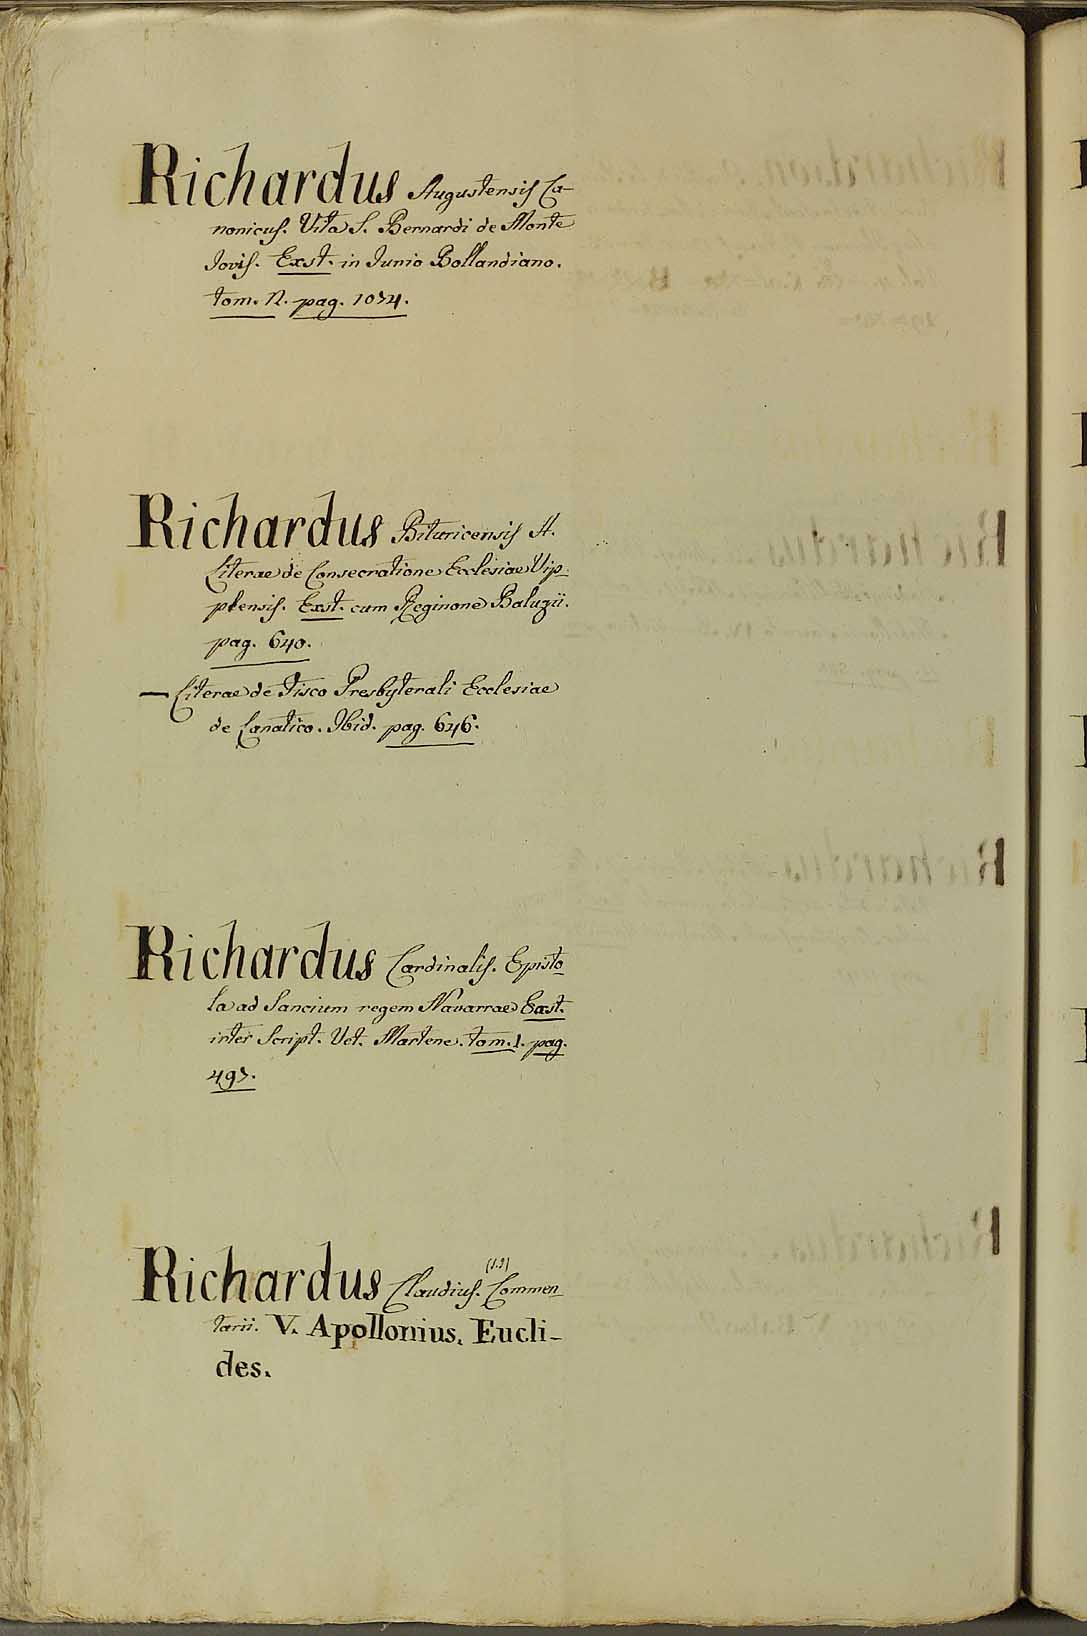 Richardus Augustensis Ca-
nonicus. Vita S. Bernardi de Monte
Jovis. Exst. in Junio Bollandiano.
tom. 2. pag. 1074.
Richardus Bituricensis A.
Literae de Consecratione Ecclesiae Vip-
plensis. Exst. cum Reginone Baluzii.
pag. 640.
— Literae de Fisco Presbyterali Ecclesiae
de Lanatico. Ibid. pag. 646.
Richardus Cardinalis. Episto-
la ad Sancium regem Navarrae Exst.
inter Script. Vet. Martene. tom. 1. pag.
497.
Richardus Claudius. (S.J) Commen-
tarii. V. Apollonius. Eucli-
des.